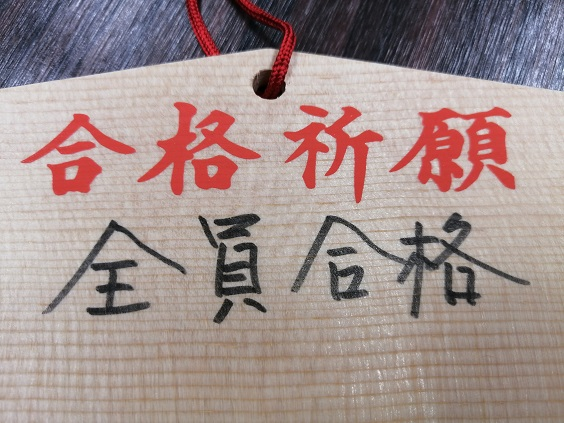 合格祈願
全員合格